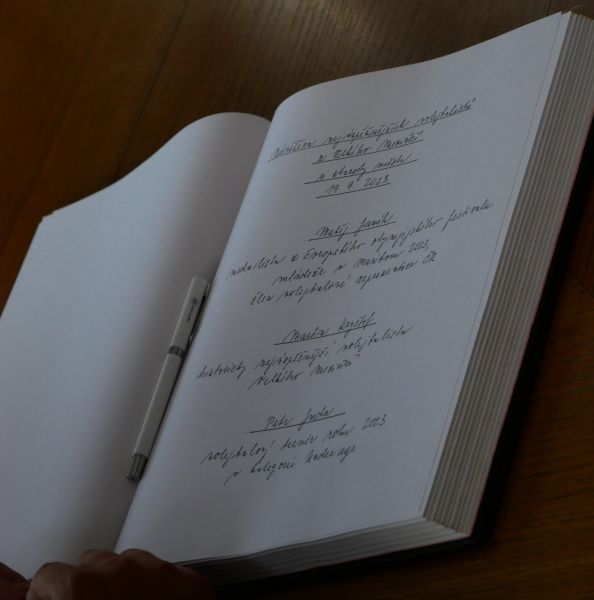 Návštěva nejúspěšnějších volejbalistů
z Velkého Meziříčí
u starosty města
19. 9. 2023
Matěj
medailista z Evropského olympijského festivalu
mládeže v Mariboru 2023,
člen volejbalové reprezentace ČR
Martin Kryštof
historicky nejúspěšnější volejbalista
Velkého Meziříčí
Petr Juda
volejbalový trenér roku 2023
v kategorii Under age